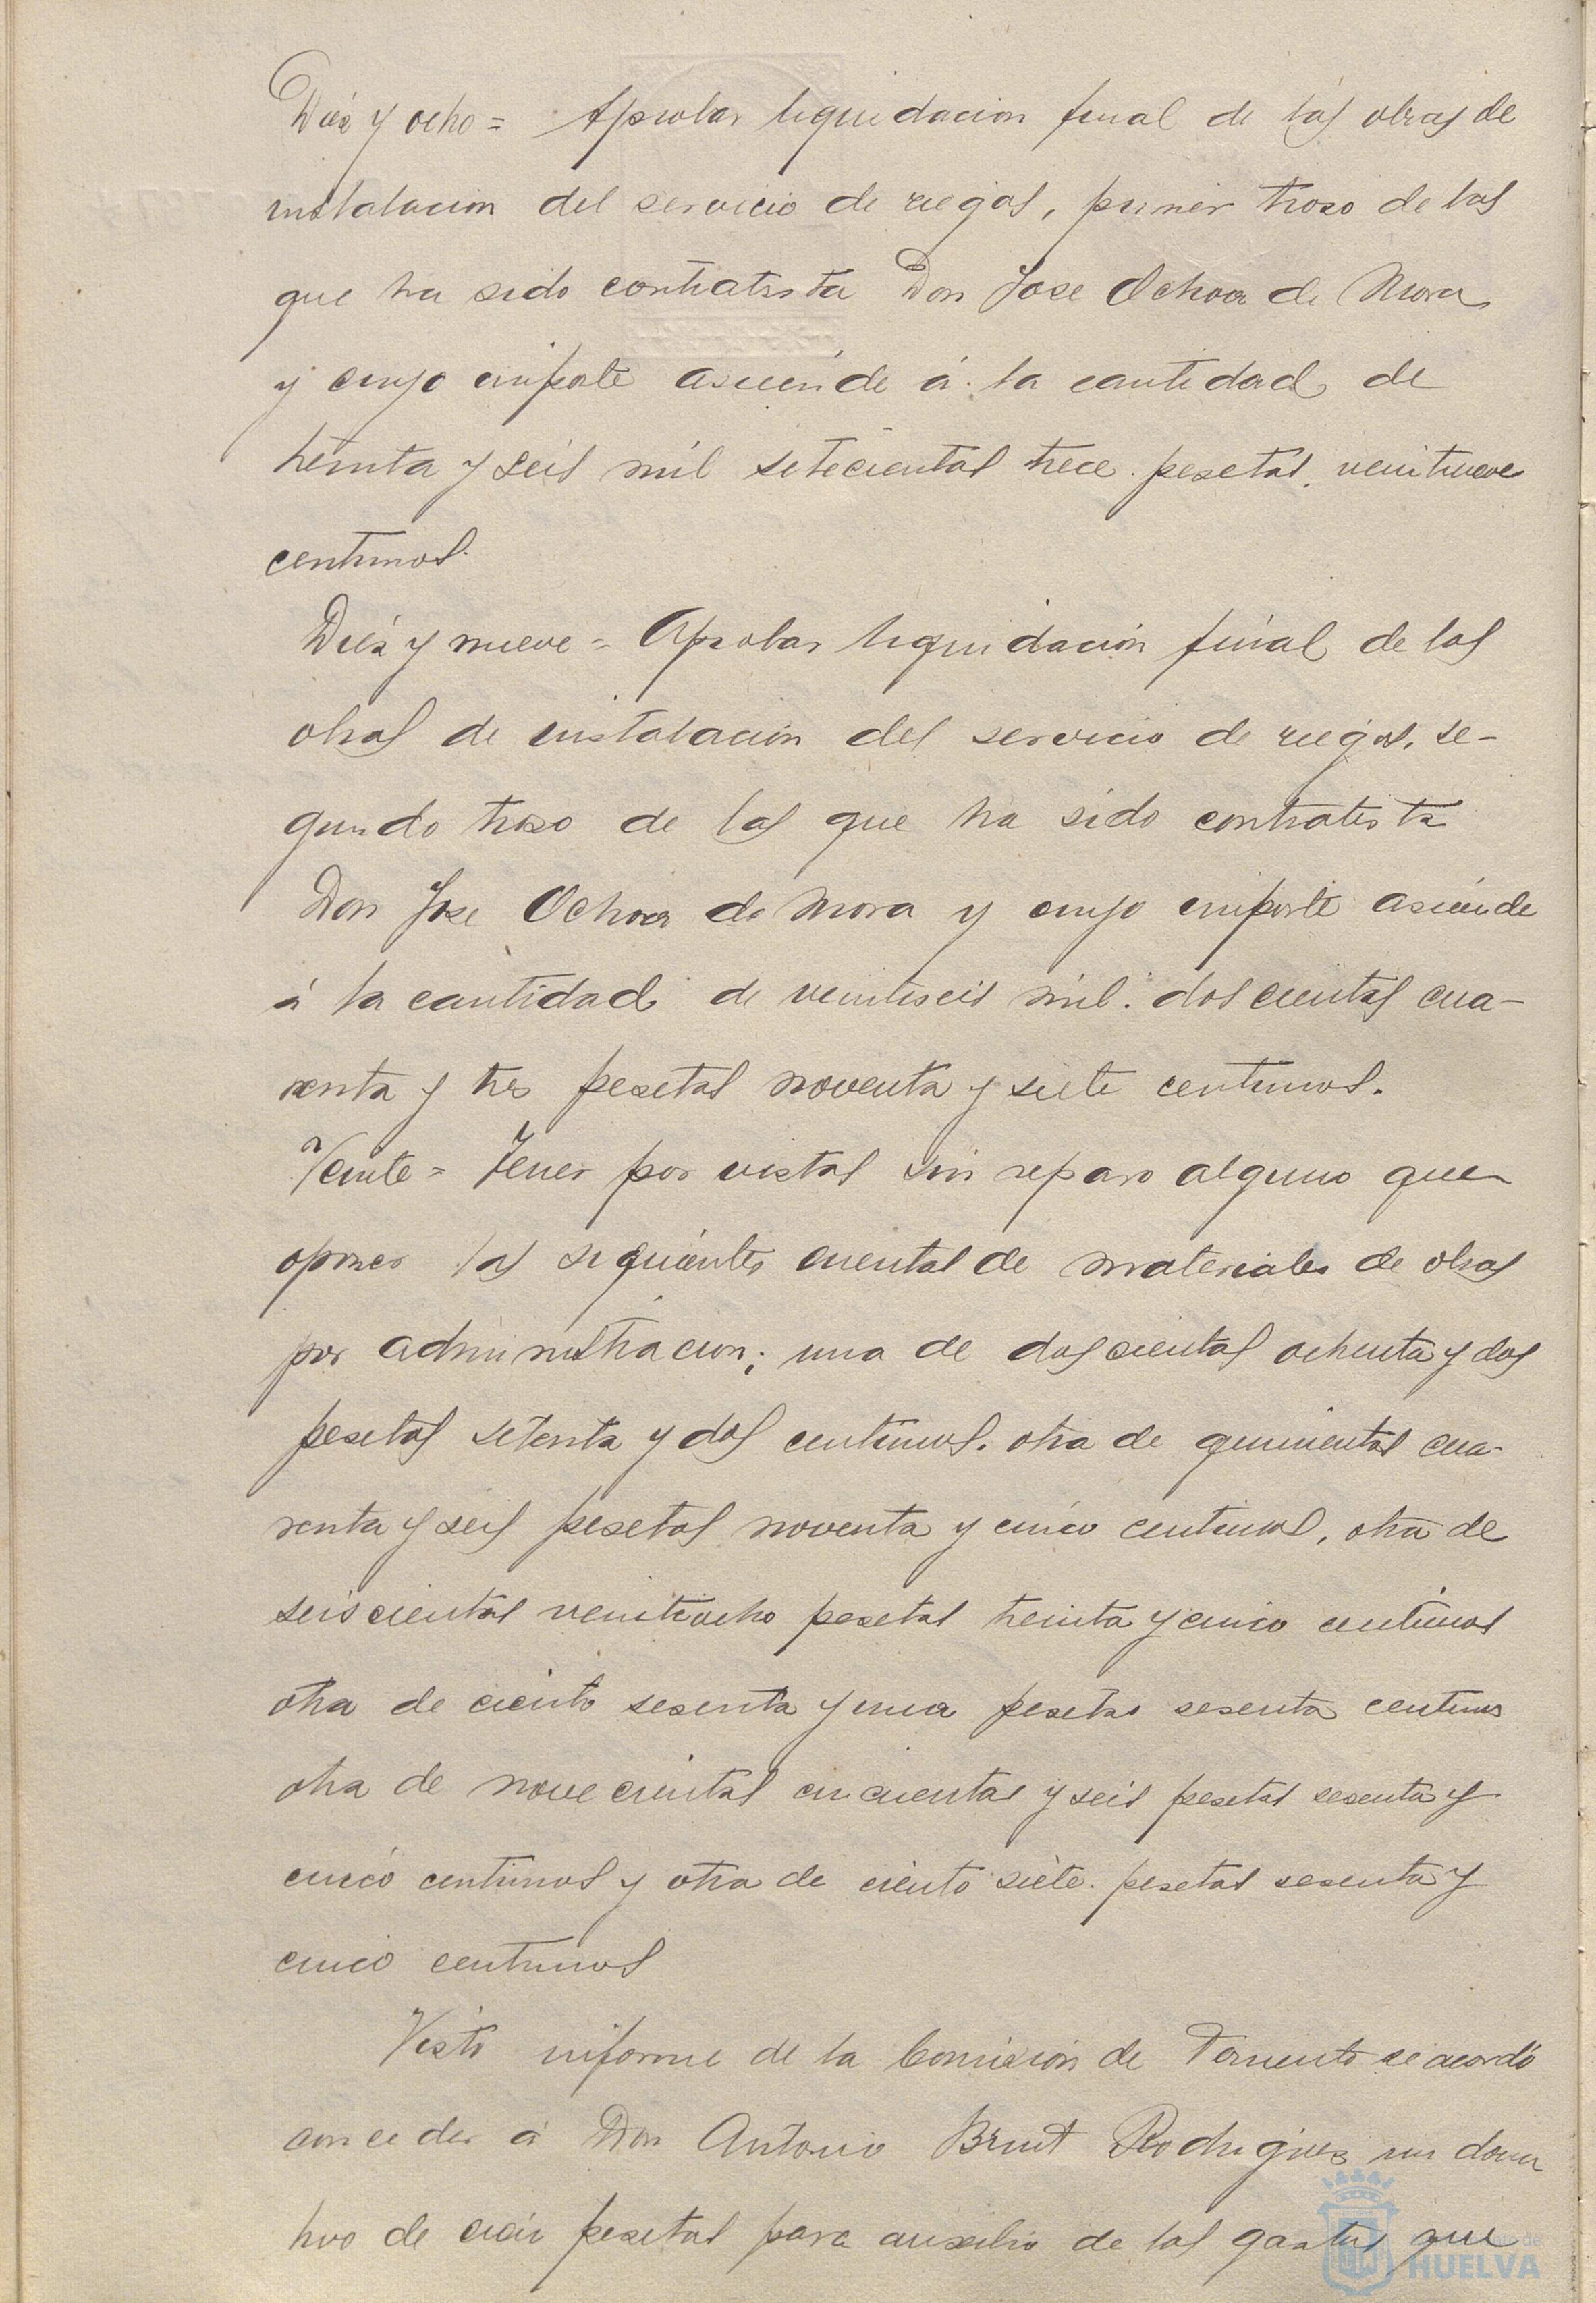 Diéz y ocho = Aprobar liquidacion final de las obras de
instalacion del servicio de riegos, primer trozo de las
que ha sido contratista Don Jose Ochoa de Mora
y cuyo importe asciende á la cantidad de
treinta y seis mil setecientas trece pesetas, veintinueve
centimos.
Diéz y nueve = Aprobar liquidación final de las
obras de instalación del servicio de riegos, se-
gundo trozo de las que ha sido contratista
Don Jose Ochoa de Mora y cuyo importe asciende
á la cantidad de veintiseis mil doscientas cua-
renta y tres pesetas noventa y siete centimos.
Veinte = Tener por vistas sin reparo alguno que
oponer las siguientes cuentas de materiales de obras
por administracion; una de doscientas ochenta y dos
pesetas setenta y dos centimos. otra de quinientas cua-
renta y seis pesetas noventa y cinco centimos, otra de
seiscientas veintiocho pesetas treinta y cinco centimos
otra de ciento sesenta y una pesetas sesenta centimos
otra de novecientas cincuentas y seis pesetas sesenta y
cinco centimos y otra de ciento siete pesetas sesenta y
cinco centimos
Visto informe de la Comision de Fomento se acordó
conceder á Don Antonio Brunt Rodriguez un dona
tivo de cien pesetas para auxilio de los gastos que
HUELVA